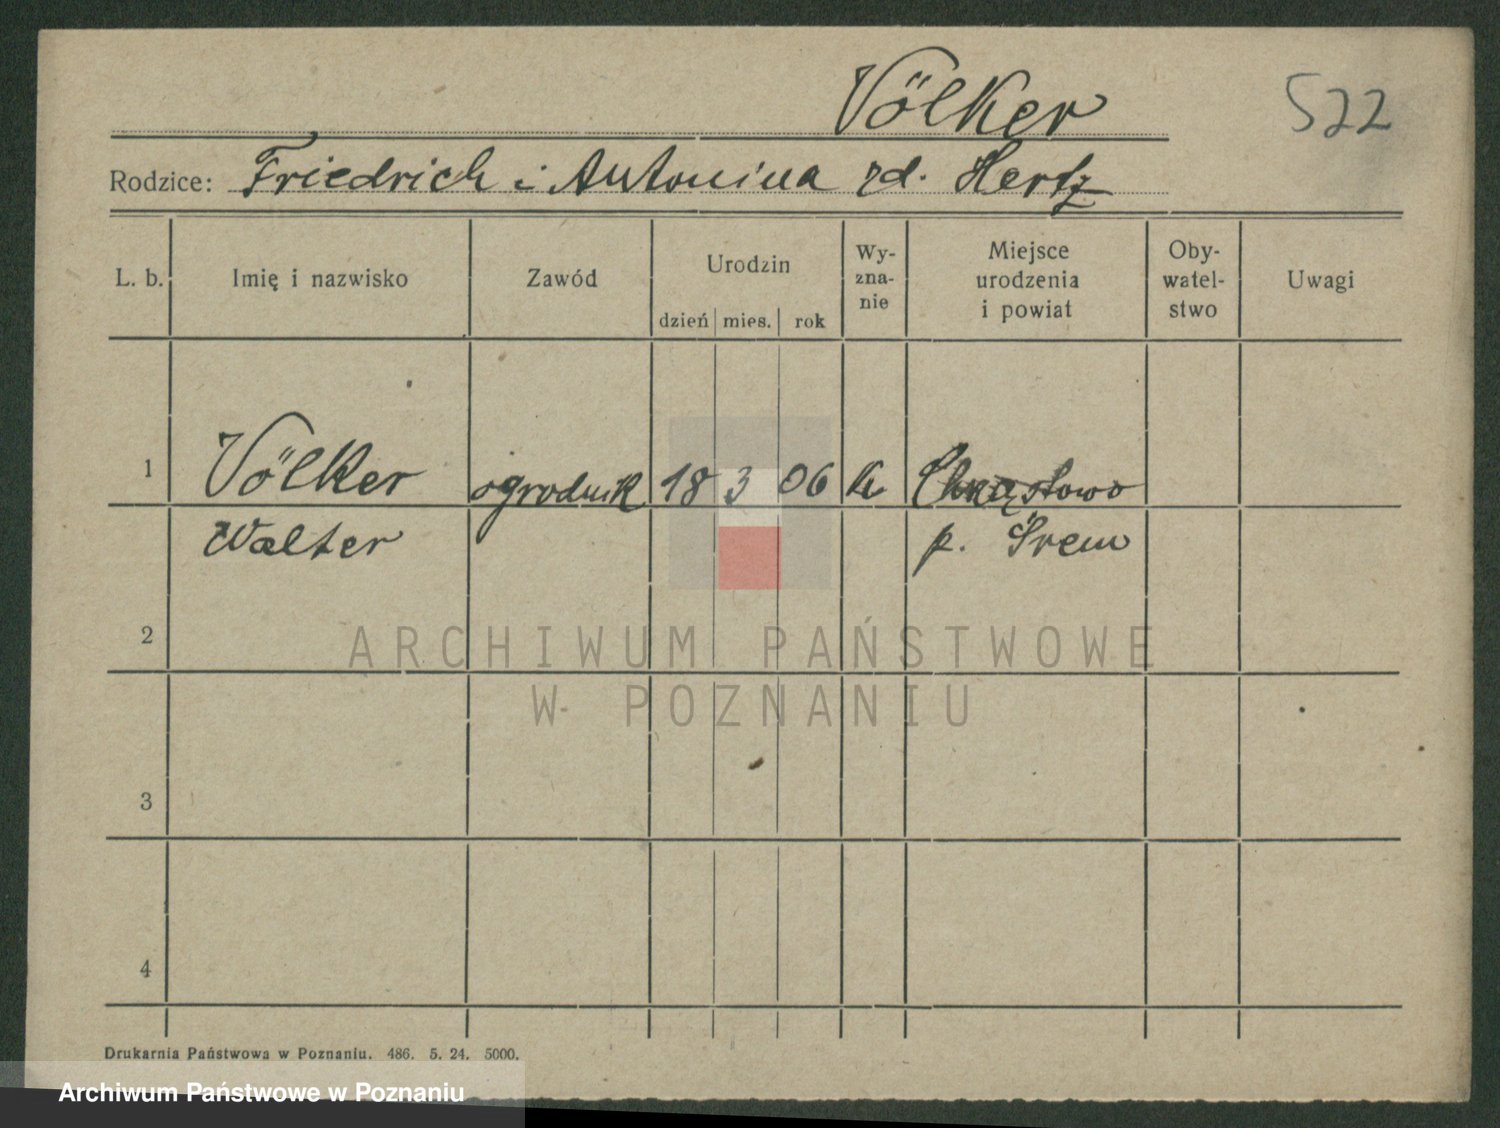 Völker
522
Rodzice: Friedrich i Antonina zd. Hertz
L. b. Imię i nazwisko Zawód Urodzin dzień mies. rok Wy-zna-nie Miejsce urodzenia i powiat Oby-watel-stwo Uwagi
1 Völker ogrodnik 18 3 06 k Chrząstowo
Walter p. Śrem
2
3
4
ARCHIWUM PAŃSTWOWE
W POZNANIU
Drukarnia Państwowa w Poznaniu. 486. 5. 24. 5000.
Archiwum Państwowe w Poznaniu